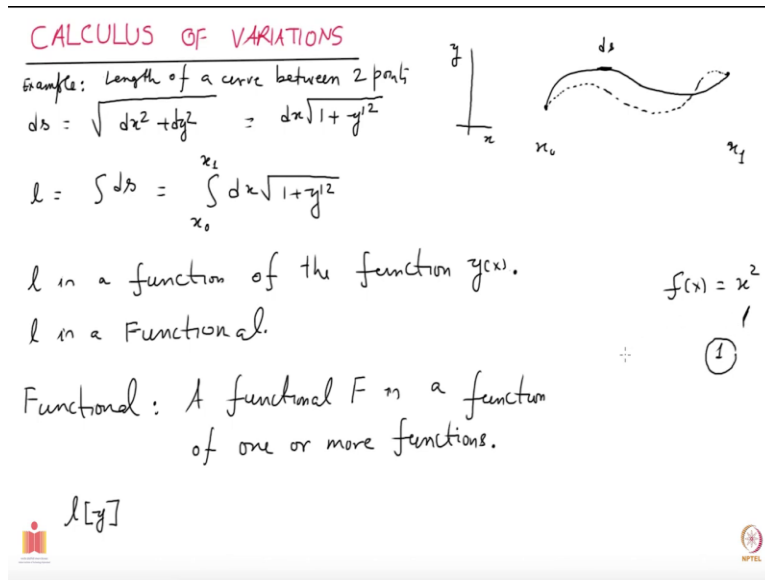 CALCULUS OF VARIATIONS
Example: Length of a curve between 2 points
ds = √dx² + dy² = dx√1 + y'²
l = ∫ ds = ∫ dx√1 + y'²
x₁
x₀
y
x
ds
x₀
x₁
l is a function of the function y(x).
f(x) = x²
1
l is a Functional.
Functional : A functional F is a function
of one or more functions.
l[y]
NPTEL